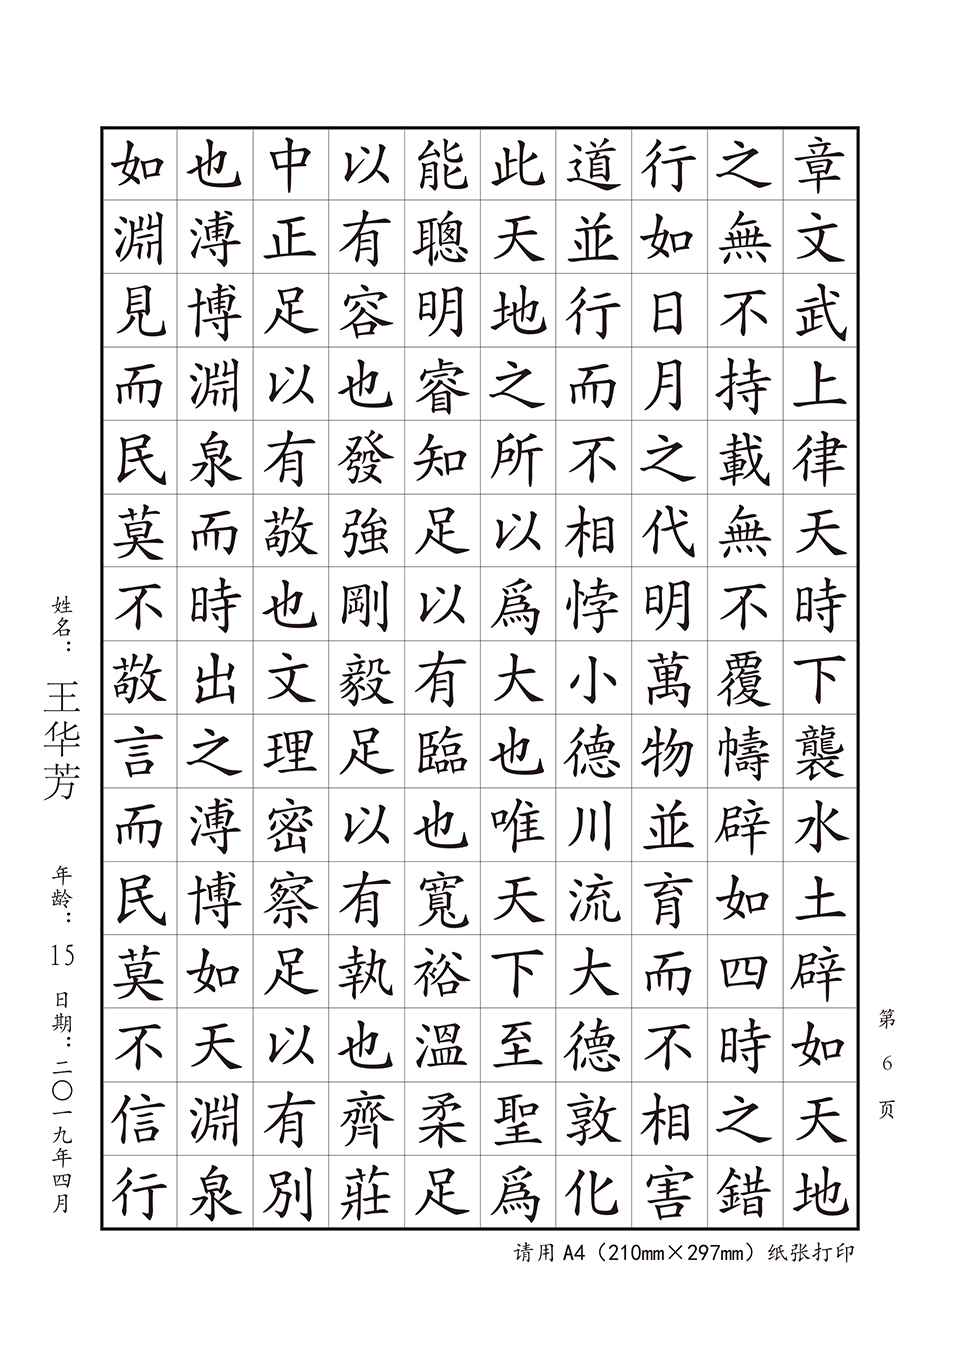 章文武上律天時下襲水土辟如天地
之無不持載無不覆幬辟如四時之錯
行如日月之代明萬物並育而不相害
道並行而不相悖小德川流大德敦化
此天地之所以爲大也唯天下至聖爲
能聰明睿知足以有臨也寬裕溫柔足
以有容也發強剛毅足以有執也齊莊
中正足以有敬也文理密察足以有別
也溥博淵泉而時出之溥博如天淵泉
如淵見而民莫不敬言而民莫不信行
姓名：王华芳 年龄：15 日期：二〇一九年四月
第6页
请用A4（210mm×297mm）纸张打印